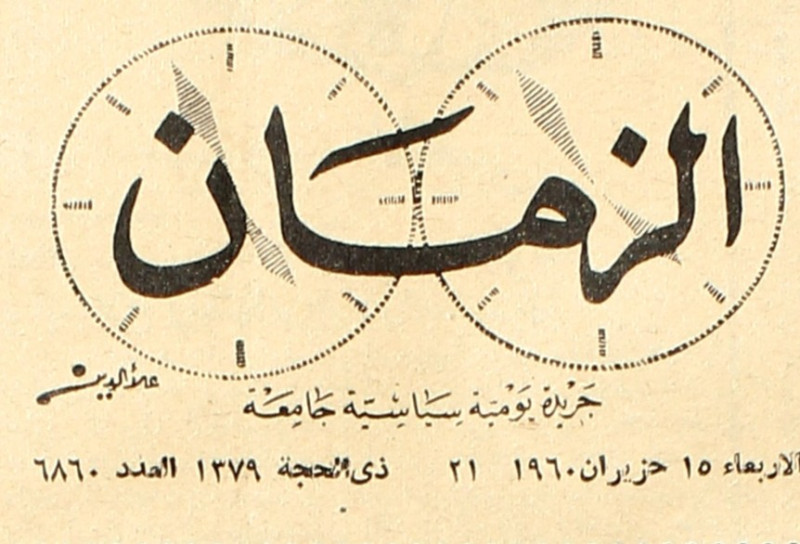 الزمان
علاءالدين
جريدة يومية سياسية جامعة
الاربعاء ١٥ حزيران ١٩٦٠ ٢١ ذى الحجة ١٣٧٩ العدد ٦٨٦٠